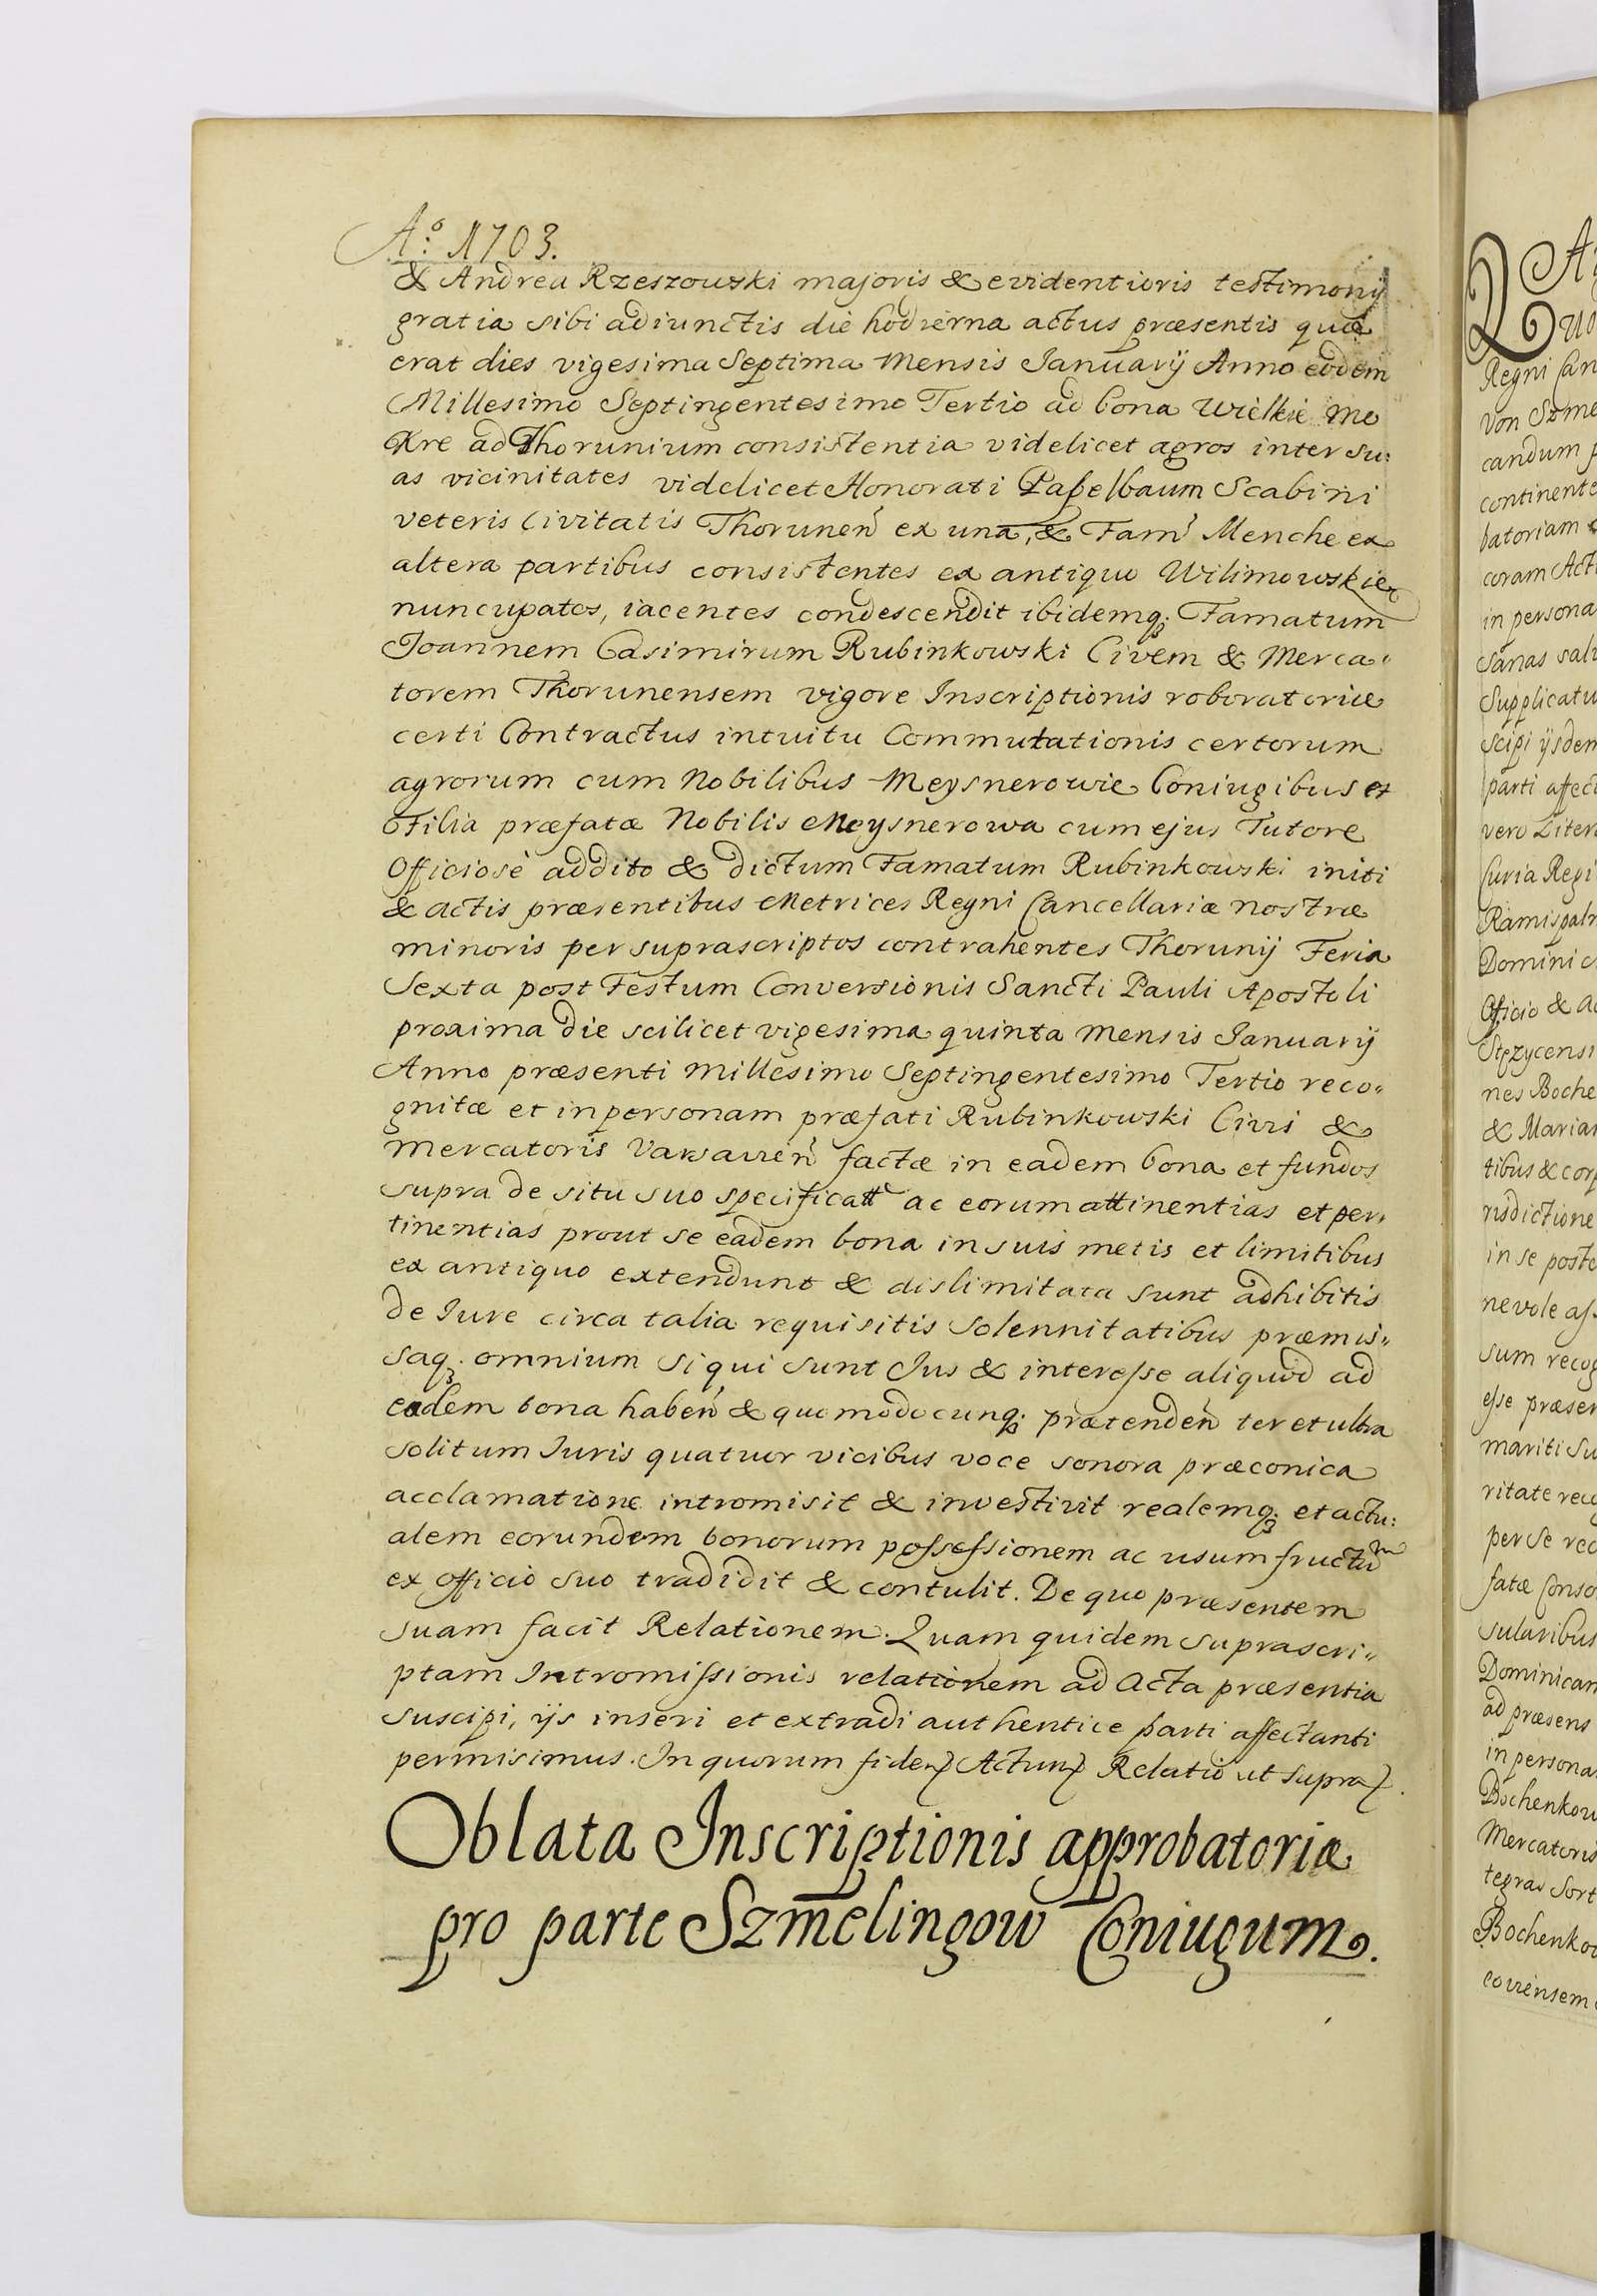 Aº 1703.
& Andrea Rzeszowski majoris & evidentioris testimonij
gratia sibi adiunctis die hodierna actus præsentis quæ
erat dies vigesima Septima Mensis Ianuarij Anno eodem
Millesimo Septingentesimo Tertio ad bona Wielkie Mo
kre ad Thorunium consistentia videlicet agros inter su:
as vicinitates videlicet Honorati Paßelbaum Scabini
veteris Civitatis Thorunen̄ ex una, & Fam̄ Menche ex
altera partibus consistentes ex antiquo Wilimowskie
nuncupatos, iacentes condescendit ibidemq; Famatum
Joannem Casimirum Rubinkowski Civem & Merca„
torem Thorunensem vigore Inscriptionis roboratoriæ
certi Contractus intuitu Commutationis certorum
agrorum cum Nobilibus Meysnerowie Coniugibus et
Filia præfatæ Nobilis Meysnerowa cum ejus Tutore
Officiosè addito & dictum Famatum Rubinkowski initi
& actis præsentibus Metrices Regni Cancellariæ nostræ
minoris per suprascriptos contrahentes Thorunij Feria
Sexta post Festum Conversionis Sancti Pauli Apostoli
proxima die scilicet vigesima quinta Mensis Ianuarij
Anno præsenti Millesimo Septingentesimo Tertio reco„
gnitæ et in personam præfati Rubinkowski Civis &
Mercatoris Varsavien̄ factæ in eadem bona et fundos
supra de situ suo specificatt ac eorum attinentias et per„
tinentias prout se eadem bona in suis metis et limitibus
ex antiquo extendunt & dislimitata sunt adhibitis
de Iure circa talia requisitis Solennitatibus præmis„
saq; omnium si qui sunt Ius & interesse aliquod ad
eadem bona haben̄ & quomodocunq; prætenden̄ ter et ultra
solitum Iuris quatuor vicibus voce sonora præconica
acclamatione intromisit & investivit realemq; et actu:
alem eorundem bonorum possessionem ac usum fructum
ex officio suo tradidit & contulit. De quo præsentem
suam facit Relationem. Quam quidem suprascri„
ptam Intromissionis relationem ad Acta præsentia
suscipi, ijs inseri et extradi authentice parti affectanti
permisimus. In quorum fidem Actum Relatio ut supra.
Oblata Inscriptionis approbatoriæ
pro parte Szmelingow Coniugum.
Regni Can
Von Szme
candum p
continente
batoriam
coram Act
in persona
Sanas salv
Supplicatu
scipi ijsdem
parti affect
vero Liter
Curia Regi
Ramispalm
Dominic
Officio & a
Stęzycensi
nes Boche
& Marian
tibus & corp
risdictione
in se poste
nevole ass
sum recog
esse præsen
mariti su
ritate reco
per se rec
fatæ Conso
sularibus
Dominican
ad præsens
in persona
Bochenkow
Mercatoris
tegras Sort
Bochenkow
coviensem